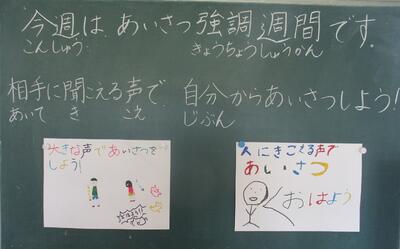 今週は、あいさつ強調週間です。
こんしゅう きょうちょうしゅうかん
相手に聞こえる声で 自分からあいさつしよう!
あいて き こえ じぶん
大きな声であいさつを
しよう!
人にきこえる声で
あいさつ
おはよう